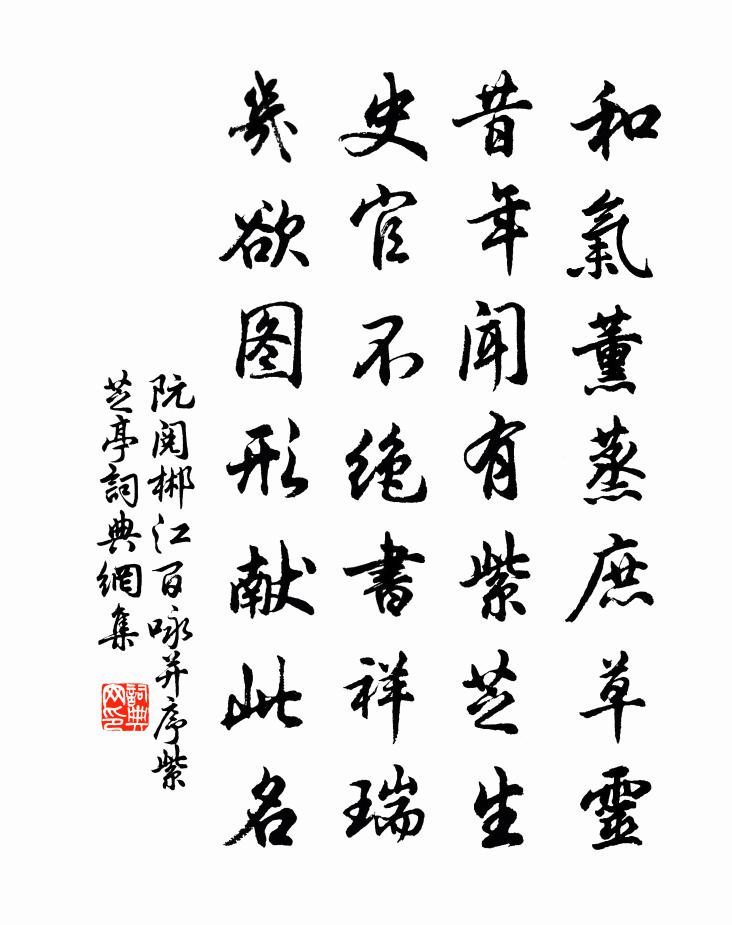 和氣薰蒸庶草靈
昔年聞有紫芝生
史官不绝書祥瑞
幾欲图形献此名
阮阅郴江百咏并序紫
芝亭詞典網集
詞典网印